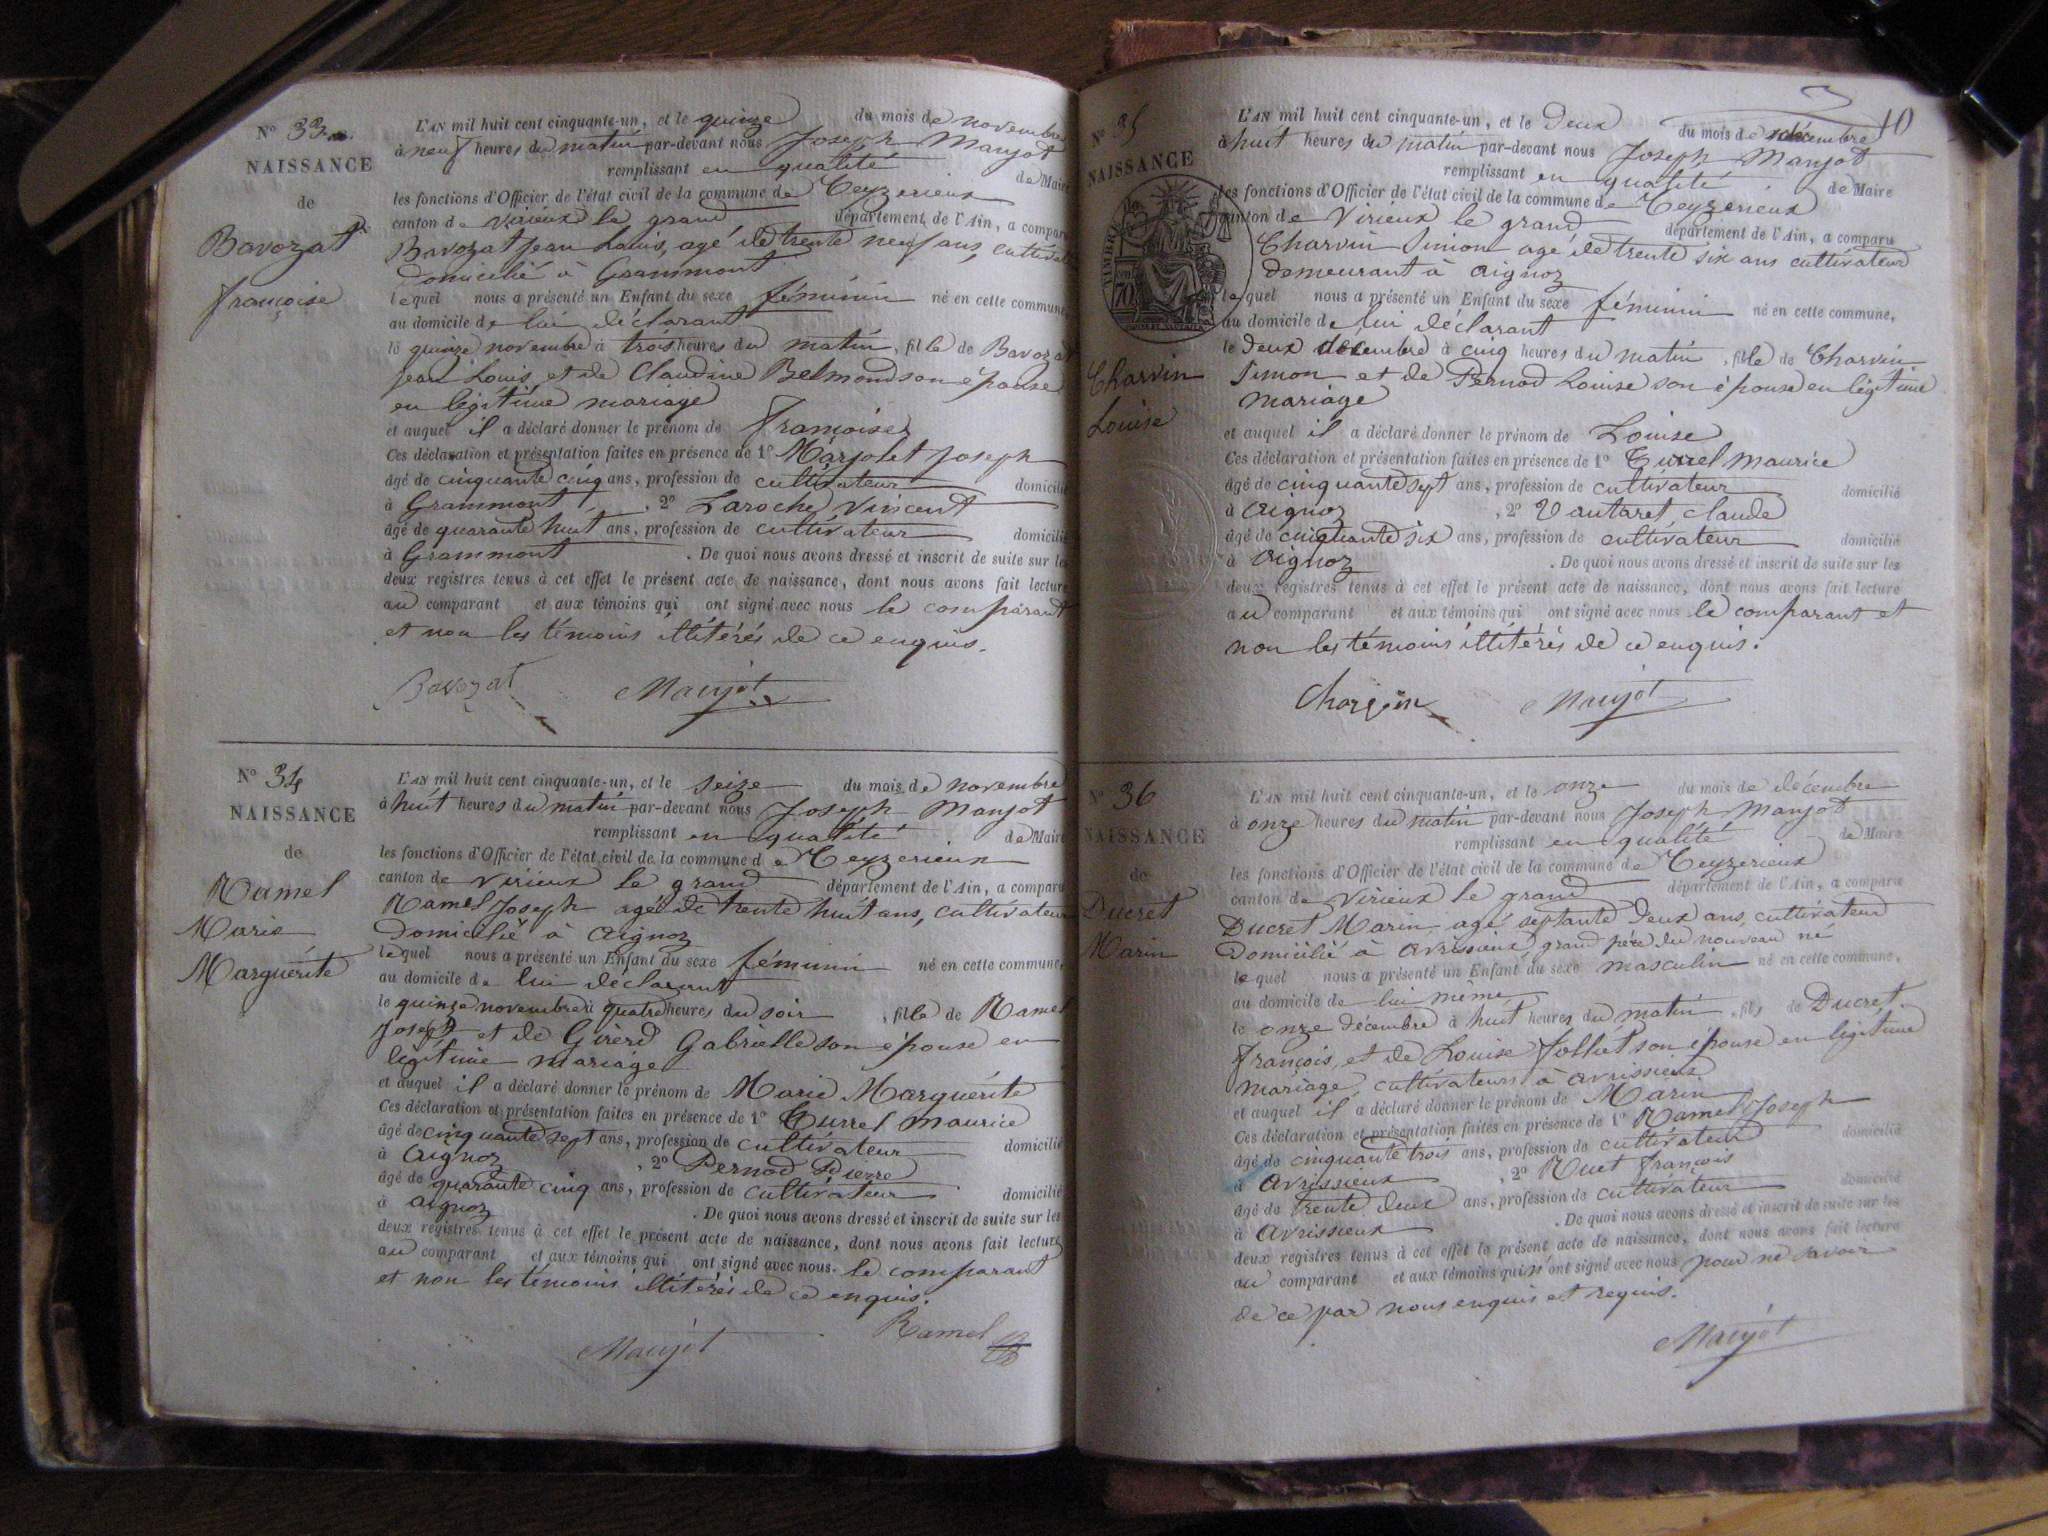 N° 33
NAISSANCE
de
Bavozat
françoise
L'AN mil huit cent cinquante-un, et le quinze du mois de novembre
à neuf heures du matin par-devant nous Joseph Manjot
remplissant en qualité de Maire
les fonctions d'Officier de l'état civil de la commune de Ceyzerieux
canton de virieux le grand département de l'Ain, a comparu
Bavozat jean Louis, agé de trente neuf ans, cultivateur
domicilié à Grammont
lequel nous a présenté un Enfant du sexe féminin né en cette commune,
au domicile de lui déclarant
le quinze novembre à trois heures du matin, fille de Bavozat
jean Louis, et de Claudine Belmond son épouse
en légitime mariage
et auquel il a déclaré donner le prénom de françoise
Ces déclaration et présentation faites en présence de 1° Marjolet joseph
âgé de cinquante cinq ans, profession de cultivateur domicilié
à Grammont, 2° Laroche Vincent
âgé de quarante huit ans, profession de cultivateur domicilié
à Grammont. De quoi nous avons dressé et inscrit de suite sur les
deux registres tenus à cet effet le présent acte de naissance, dont nous avons fait lecture
au comparant et aux témoins qui ont signé avec nous le comparant
et non les témoins illitérés de ce enquis.
Bavozat Manjot
N° 34
NAISSANCE
de
Ramel
Marie
Marguérite
L'AN mil huit cent cinquante-un, et le seize du mois de novembre
à huit heures du matin par-devant nous Joseph Manjot
remplissant en qualité de Maire
les fonctions d'Officier de l'état civil de la commune de Ceyzerieux
canton de virieux le grand département de l'Ain, a comparu
Ramel Joseph agé de trente huit ans, cultivateur
domicilié à aignoz
lequel nous a présenté un Enfant du sexe féminin né en cette commune,
au domicile de lui déclarant
le quinze novembre à quatre heures du soir, fille de Ramel
Joseph et de Girerd Gabrielle son épouse en
légitime mariage
et auquel il a déclaré donner le prénom de Marie Marguérite
Ces déclaration et présentation faites en présence de 1° Turrel maurice
âgé de cinquante sept ans, profession de cultivateur domicilié
à aignoz, 2° Pernod Pierre
âgé de quarante cinq ans, profession de cultivateur domicilié
à aignoz. De quoi nous avons dressé et inscrit de suite sur les
deux registres tenus à cet effet le présent acte de naissance, dont nous avons fait lecture
au comparant et aux témoins qui ont signé avec nous le comparant
et non les témoins illitérés de ce enquis.
Manjot Ramel
10
N° 35
NAISSANCE
TIMBRE
70
Charvin
Louise
L'AN mil huit cent cinquante-un, et le deux du mois de décembre
à huit heures du matin par-devant nous Joseph Manjot
remplissant en qualité de Maire
les fonctions d'Officier de l'état civil de la commune de Ceyzerieux
canton de Virieux le grand département de l'Ain, a comparu
Charvin Simon agé de trente six ans cultivateur
demeurant à aignoz
lequel nous a présenté un Enfant du sexe féminin né en cette commune,
au domicile de lui déclarant
le deux décembre à cinq heures du matin, fille de Charvin
Simon et de Pernod Louise son épouse en légitime
mariage
et auquel il a déclaré donner le prénom de Louise
Ces déclaration et présentation faites en présence de 1° Turrel maurice
âgé de cinquante sept ans, profession de cultivateur domicilié
à aignoz, 2° Vautaret claude
âgé de cinquante six ans, profession de cultivateur domicilié
à aignoz. De quoi nous avons dressé et inscrit de suite sur les
deux registres tenus à cet effet le présent acte de naissance, dont nous avons fait lecture
au comparant et aux témoins qui ont signé avec nous le comparant et
non les témoins illitérés de ce enquis.
Manjot
N° 36
NAISSANCE
de
Ducret
Marin
L'AN mil huit cent cinquante-un, et le onze du mois de décembre
à onze heures du matin par-devant nous Joseph Manjot
remplissant en qualité de Maire
les fonctions d'Officier de l'état civil de la commune de Ceyzerieux
canton de virieux le grand département de l'Ain, a comparu
Ducret Marin agé septante deux ans, cultivateur
domicilié à avrissieux grand père du nouveau né
lequel nous a présenté un Enfant du sexe masculin né en cette commune,
au domicile de lui même
le onze décembre à huit heures du matin, fils de Ducret
françois, et de Louise Jolliet son épouse en légitime
mariage, cultivateurs à avrissieux
et auquel il a déclaré donner le prénom de Marin
Ces déclaration et présentation faites en présence de 1° Ramel Joseph
âgé de cinquante trois ans, profession de cultivateur domicilié
à avrissieux, 2° Ruet françois
âgé de trente deux ans, profession de cultivateur domicilié
à avrissieux. De quoi nous avons dressé et inscrit de suite sur les
deux registres tenus à cet effet le présent acte de naissance, dont nous avons fait lecture
au comparant et aux témoins qui n'ont signé avec nous pour ne savoir
de ce par nous enquis et requis.
Manjot